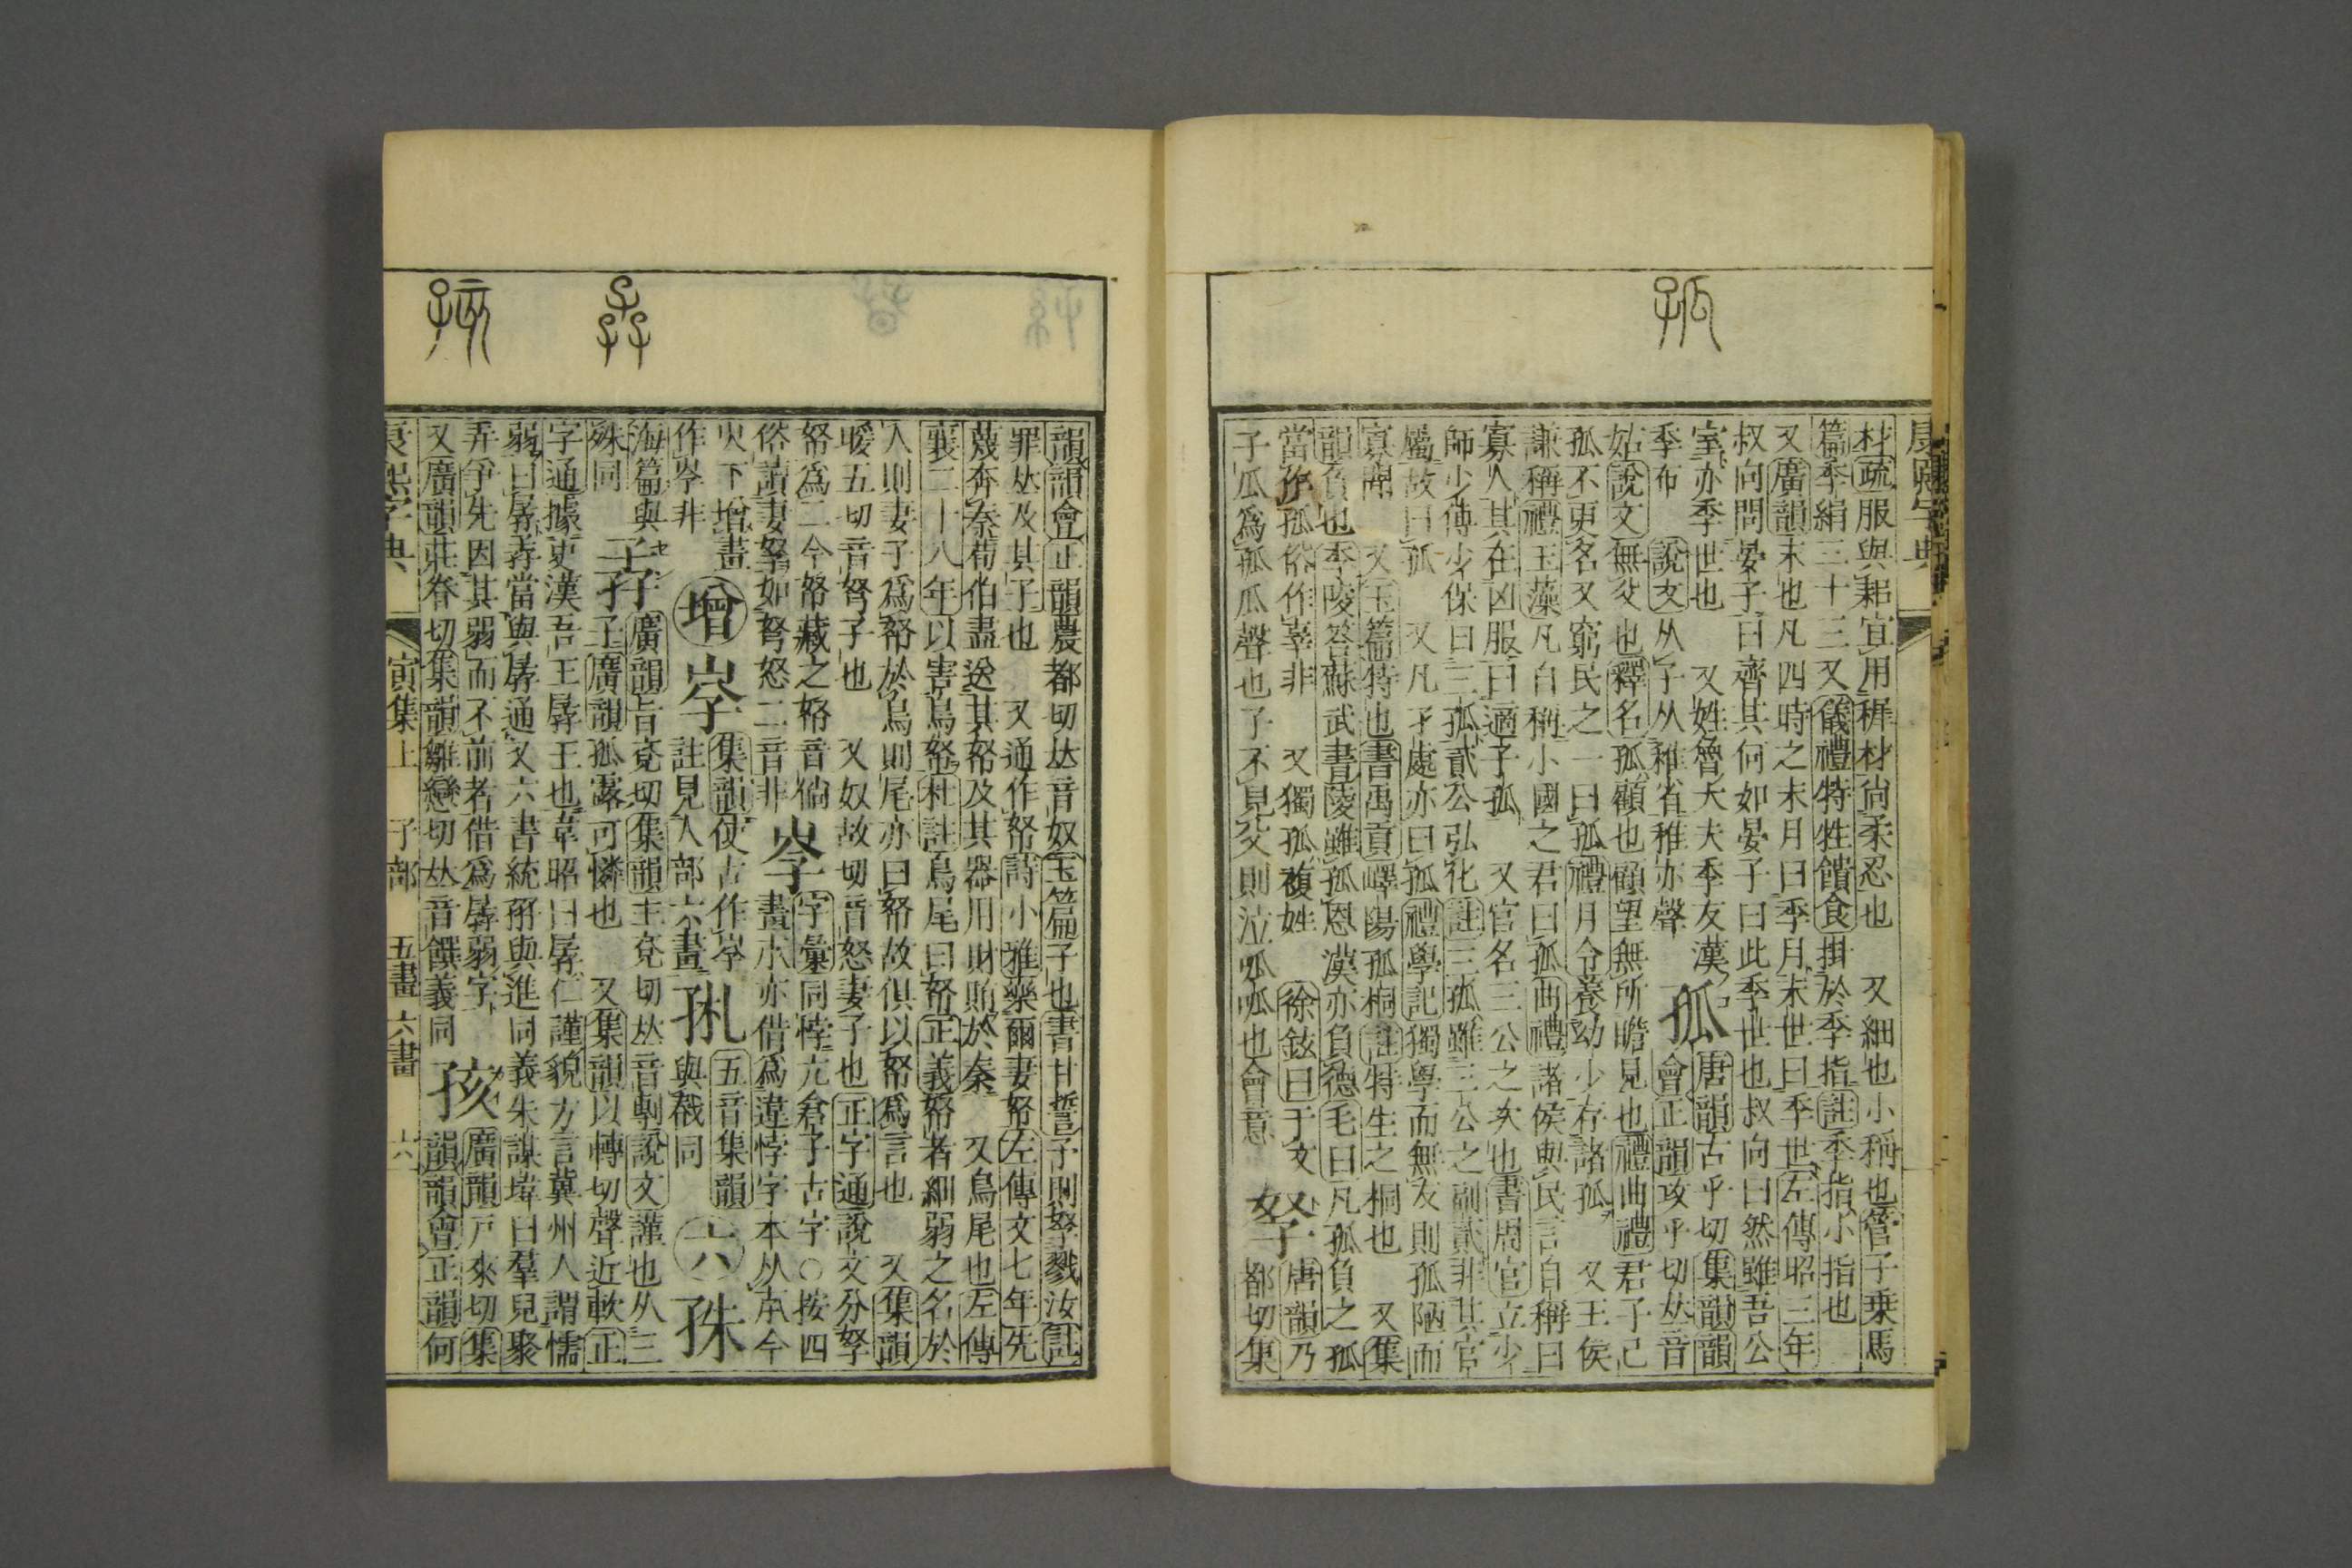 孤
材疏服與耜宜用穉材尙柔忍也 又細也小稱也管子乗馬
篇季絹三十三又儀禮特牲饋食掛於季指註季指小指也
又廣韻末也凡四時之末月曰季月末世曰季世左傳昭三年
叔向問晏子曰齊其何如晏子曰此季世也叔向曰然雖吾公
室亦季世也 又姓魯大夫季友漢
季布 說文从子从稚省稚亦聲
孤 唐韻古乎切集韻韻
會正韻攻乎切𠀤音
姑說文無父也釋名孤顧也顧望無所瞻見也禮曲禮君子已
孤不更名又窮民之一曰孤禮月令養幼少存諸孤 又王侯
謙稱禮玉藻凡自稱小國之君曰孤曲禮諸侯與民言自稱曰
寡人其在凶服曰適子孤 又官名三公之次也書周官立少
師少傅少保曰三孤貳公弘化註三孤雖三公之副貳非其官
屬故曰孤 又凡孑處亦曰孤禮學記獨學而無友則孤陋而
寡聞 又玉篇特也書禹貢嶧陽孤桐註特生之桐也 又集
韻負也李陵答蘇武書陵雖孤恩漢亦負德毛曰凡孤負之孤
當作孤俗作辜非 又獨孤複姓 徐鉉曰于文
子瓜爲孤瓜聲也子不見父則泣呱呱也會意
孥 唐韻乃
都切集
康熙字典
孨
孩
韻韻會正韻農都切𠀤音奴玉篇子也書甘誓予則孥戮汝註
罪𠀤及其子也 又通作帑詩小雅樂爾妻帑左傳文七年先
蔑奔秦荀伯盡送其帑及其器用財賄於秦 又鳥尾也左傳
襄二十八年以害鳥帑杜註鳥尾曰帑正義帑者細弱之名於
人則妻子爲帑於鳥則鳥尾亦曰帑故俱以帑爲言也 又集韻
暖五切音弩子也 又奴故切音怒妻子也正字通說文分孥
帑爲二今帑藏之帑音儻
俗讀妻孥如弩怒二音非
㝒 字彙同悖亢倉子古字○按四
畫𣎵亦借爲違悖字本从𣎵今
火下增畫
作㝒非
增
㝒 集韻使古作㝒
註見人部六畫
㧈 五音集韻
與戟同
六
㧉 海篇與
殊同
孨 廣韻旨兗切集韻主兗切𠀤音剸說文謹也从三
子廣韻孤露可憐也 又集韻以轉切聲近軟正
字通據更漢吾王孱王也韋昭曰孱仁謹貌方言冀州人謂懦
弱曰孱孨當與孱通又六書統孨與進同義朱謀㙔曰羣兒聚
弄爭先因其弱而不前者借爲孱弱字
又廣韻莊眷切集韻雛戀切𠀤音饌義同
孩 廣韻戸來切集
韻韻會正韻何
康熙字典 寅集上 子部 五畫 六畫 十六